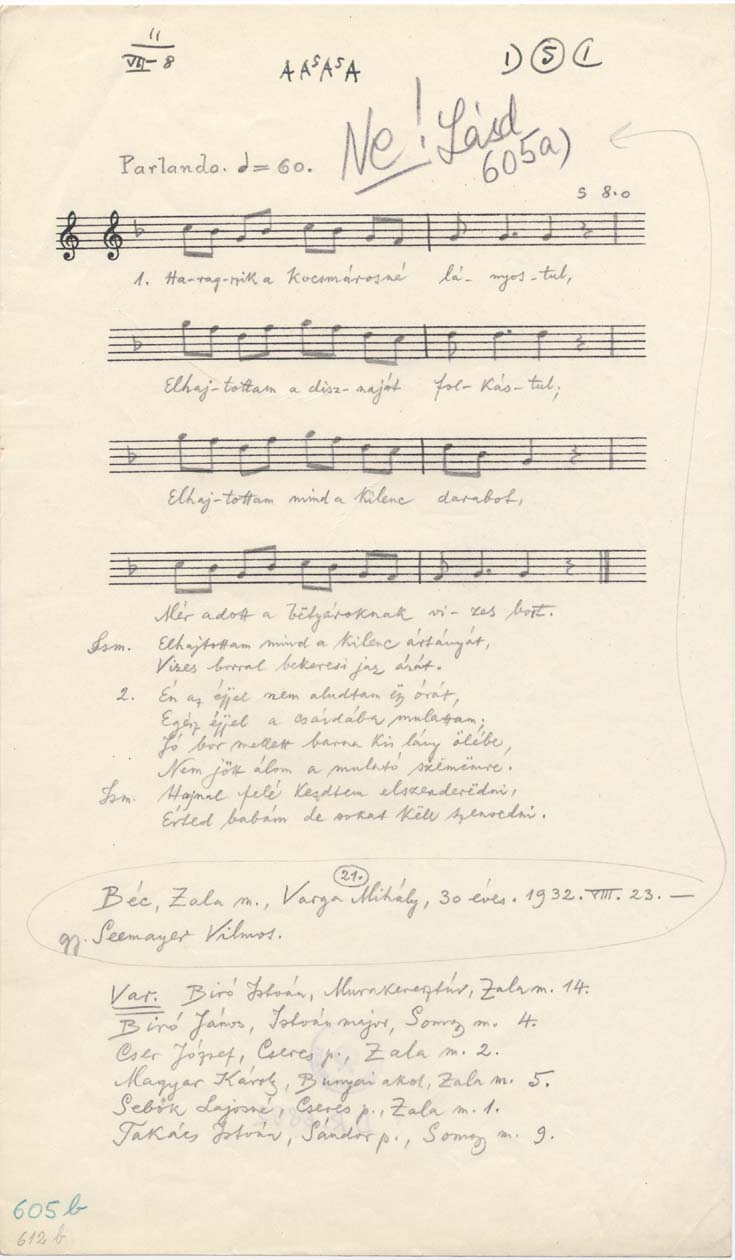 11
VII-8
A A⁵ A⁵ A
1) ⑤ (1
Ne! Lásd
605a)
Parlando. ♩= 60.
5 8.0
1. Ha-rag-szik a kocsmárosné lá- nyos-tul,
Elhaj-tottam a disz-naját fol-kás-tul;
Elhaj-tottam mind a kilenc darabot,
Mér adott a bëtyároknak vi-zes bort.
Ism. Elhajtottam mind a kilenc ártányát,
Vizes borral bekeresi jaz árát.
2. Én az éjjel nem aludtam ëz órát,
Egész éjjel a csárdába mulattam;
Jó bor mellett barna kis lány ölébe,
Nem jött álom a mulató szëmëmre.
Ism. Hajnal felé kezdtem elszenderëdni,
Érted babám de sokat këll szenvedni.
21.
Béc, Zala m., Varga Mihály, 30 éves. 1932. VIII. 23. —
gy. Seemayer Vilmos.
Var. Biró István, Murakeresztúr, Zala m. 14.
Biró János, István major, Somogy m. 4.
Cser József, Cseres p., Zala m. 2.
Magyar Károly, Bunyai akol, Zala m. 5.
Sebők Lajosné, Cseres p., Zala m. 1.
Takács István, Sándor p., Somogy m. 9.
605 b
612 b